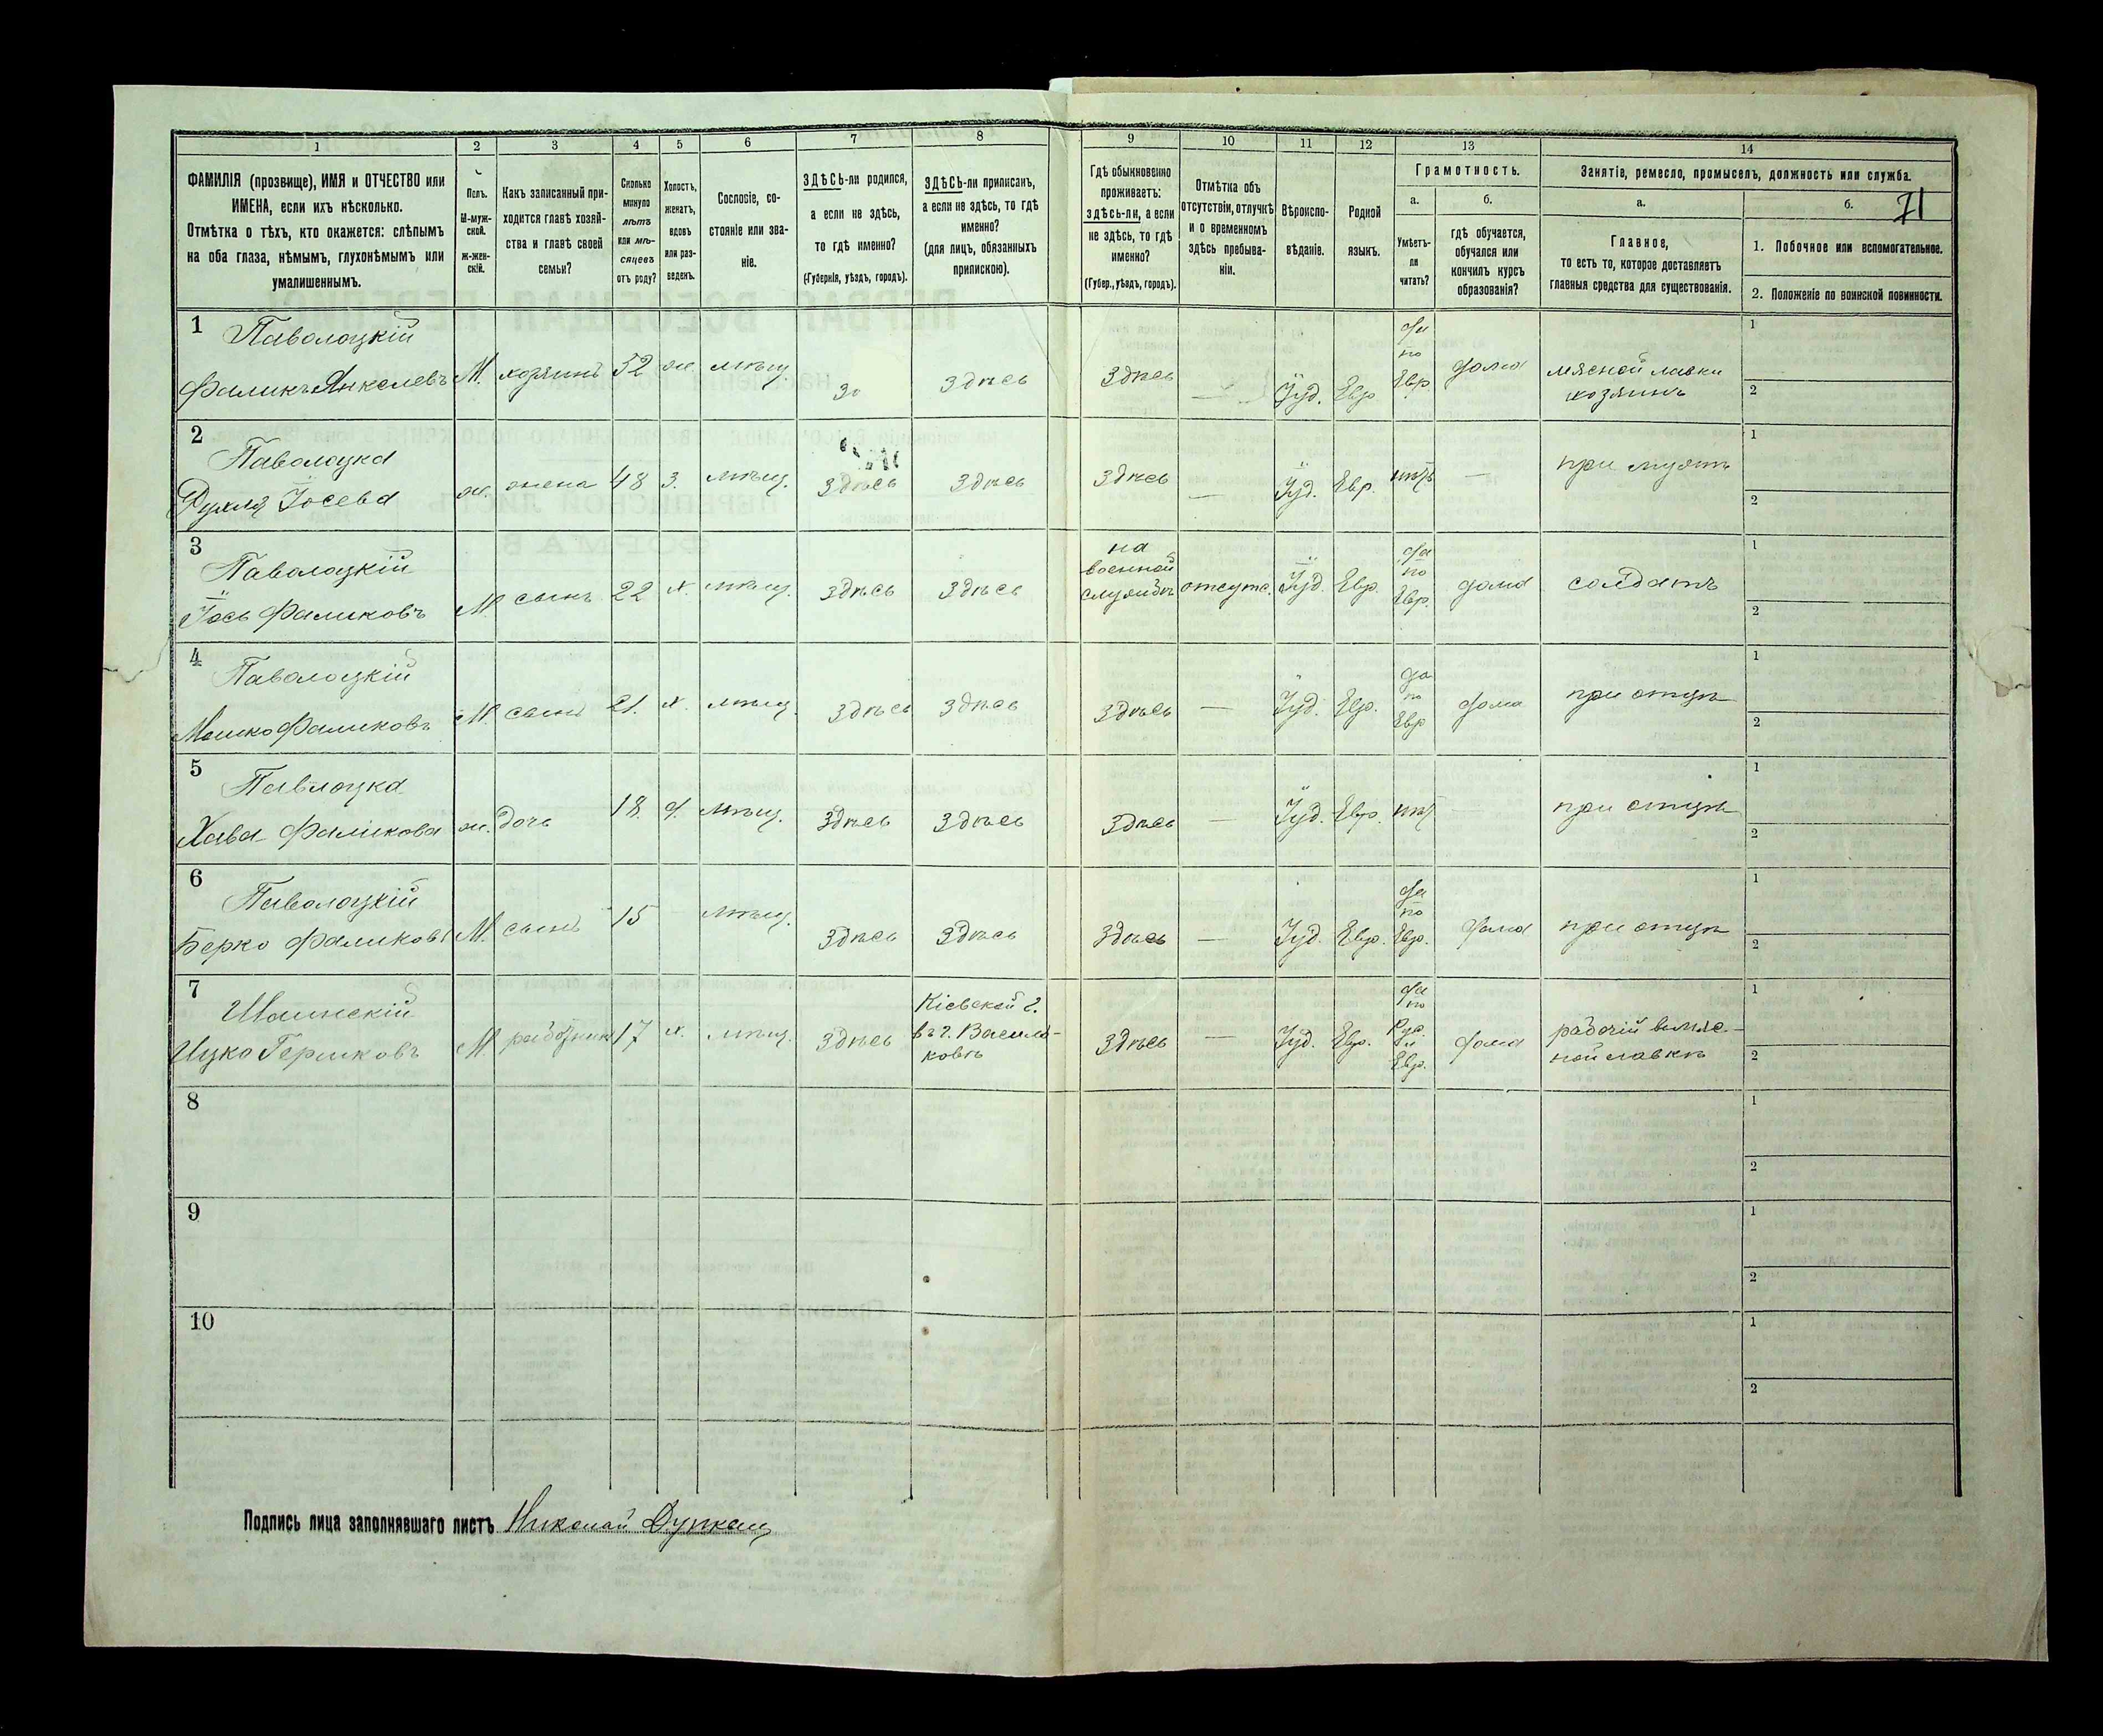 1
2
3
4
5
6
7
8
9
10
11
12
13
14
ФАМИЛІЯ (прозвище), ИМЯ и ОТЧЕСТВО или
ИМЕНА, если ихъ нѣсколько.
Отмѣтка о тѣхъ, кто окажется: слѣпымъ
на оба глаза, нѣмымъ, глухонѣмымъ или
умалишеннымъ.
Полъ.
М-муж-
ской.
Ж-жен-
скій.
Какъ записанный при-
ходится главѣ хозяй-
ства и главѣ своей
семьи?
Сколько
минуло
лѣтъ
или мѣ-
сяцевъ
отъ роду?
Холостъ,
женатъ,
вдовъ
или раз-
веденъ.
Сословіе, со-
стояніе или зва-
ніе.
ЗДѢСЬ-ли родился,
а если не здѣсь,
то гдѣ именно?
(Губернія, уѣздъ, городъ).
ЗДѢСЬ-ли приписанъ,
а если не здѣсь, то гдѣ
именно?
(для лицъ, обязанныхъ
припискою).
Гдѣ обыкновенно
проживаетъ:
здѣсь-ли, а если
не здѣсь, то гдѣ
именно?
(Губер., уѣздъ, городъ).
Отмѣтка объ
отсутствіи, отлучкѣ
и о временномъ
здѣсь пребыва-
ніи.
Вѣроиспо-
вѣданіе.
Родной
языкъ.
Грамотность.
а.
Умѣетъ-
ли
читать?
б.
гдѣ обучается,
обучался или
кончилъ курсъ
образованія?
Занятіе, ремесло, промыселъ, должность или служба.
а.
Главное,
то есть то, которое доставляетъ
главныя средства для существованія.
б.
71
1. Побочное или вспомогательное.
2. Положеніе по воинской повинности.
1
Паволоцкій
Фаликъ Янкелевъ
М.
хозяинъ
52
ж
мѣщ.
Зд
Здѣсь
Здѣсь
—
Іуд.
Евр
да
по
Евр.
дома
мясной лавки
хозяинъ
1
2
2
Паволоцка
Рухля Іосева
ж.
жена
48
з.
мѣщ.
Здѣсь
Здѣсь
Здѣсь
—
Іуд.
Евр.
нѣтъ
—
при мужѣ
1
2
3
Паволоцкій
Іось Фаликовъ
М
сынъ
22
х.
мѣщ.
Здѣсь
Здѣсь
на
военной
службѣ
отсутс.
Іуд.
Евр.
да
по
Евр.
дома
солдатъ
1
2
4
Паволоцкій
Мошко Фаликовъ
М.
сынъ
21.
х.
мѣщ.
Здѣсь
Здѣсь
Здѣсь
—
Іуд.
Евр.
да
по
Евр
дома
при отцѣ
1
2
5
Павлоцка
Хава Фаликова
ж.
дочь
18.
д.
мѣщ.
Здѣсь
Здѣсь
Здѣсь
—
Іуд.
Евр.
нѣт
—
при отцѣ
1
2
6
Паволоцкій
Берко Фаликовъ
М.
сынъ
15
мѣщ.
Здѣсь
Здѣсь
Здѣсь
—
Іуд.
Евр.
да
по
Евр.
дома
при отцѣ
1
2
7
Ицко Гершковъ
М.
работник
17
х.
мѣщ.
Здѣсь
Кіевской г.
въ г. Василь-
ковѣ
Здѣсь
—
Іуд.
Евр.
да
по
Рус.
и
Евр.
дома
рабочій в мяс-
ной лавкѣ
1
2
8
1
2
9
1
2
10
1
2
Подпись лица заполнявшаго листъ Николай